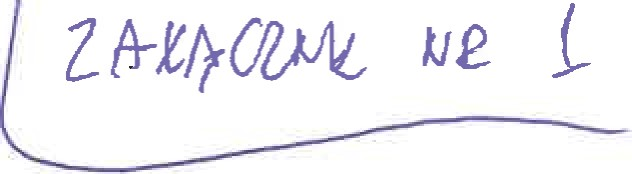 ZAŁĄCZNIK NR 1